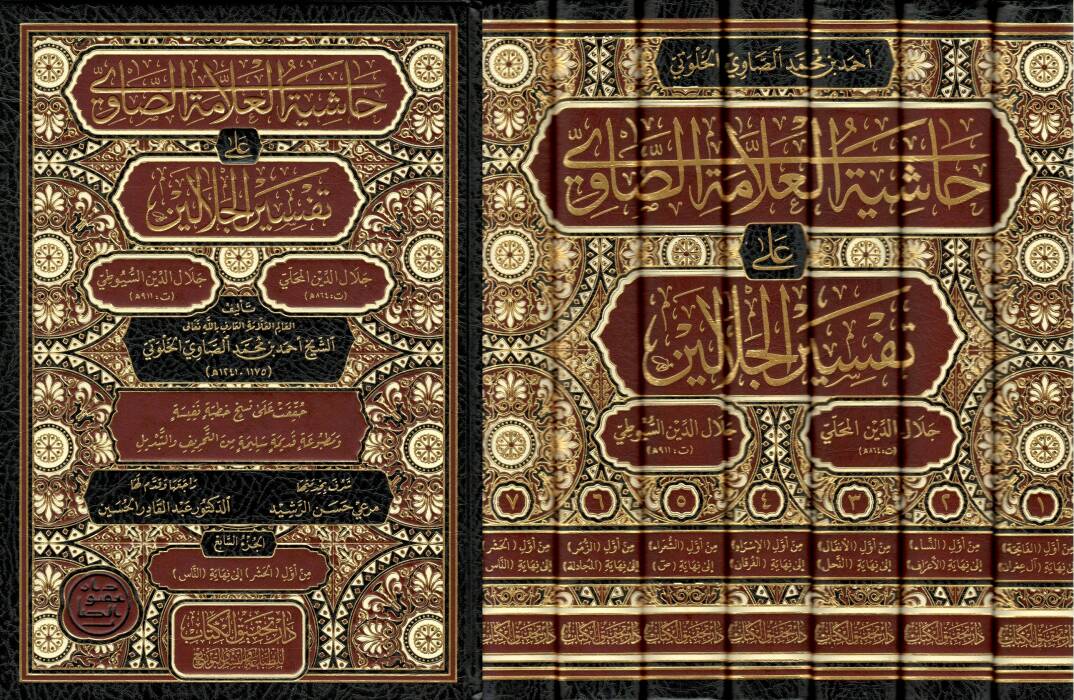 حاشية العلامة الصاوي
على
تفسير الجلالين
جلال الدين المحلي
(ت: ٨٦٤ه)
جلال الدين السيوطي
(ت: ٩١١ه)
تأليف
العالم العلامة العارف بالله تعالى
الشيخ أحمد بن محمد الصاوي الخلوتي
(١١٧٥-١٢٤١ه)
حُقِّقَتْ عَلَى نُسَخٍ خَطِّيَّةٍ نَفِيسَةٍ
وَمَطْبُوعَةٍ قَدِيمَةٍ سَلِيمَةٍ مِنَ التَّحْرِيفِ وَالتَّبْدِيلِ
مرعي حسن الرشيد
راجعها وقدم لها
الدكتور عبد القادر الحسين
الجزء السابع
مِنْ أَوَّلِ (الحَشْرِ) إِلَى نِهَايَةِ (النَّاسِ)
دار تحقيق الكتاب
للطباعة والنشر والتوزيع
أحمد بن محمد الصاوي الخلوتي
حاشية العلامة الصاوي
على
تفسير الجلالين
جلال الدين المحلي
(ت: ٨٦٤ه)
جلال الدين السيوطي
(ت: ٩١١ه)
١
٢
٣
٤
٥
٦
٧
من أول (الفاتحة)
إلى نهاية (آل عمران)
من أول (النساء)
إلى نهاية (الأعراف)
من أول (الأنفال)
إلى نهاية (النحل)
من أول (الإسراء)
إلى نهاية (الفرقان)
من أول (الشعراء)
إلى نهاية (ص)
من أول (الزمر)
إلى نهاية (المجادلة)
من أول (الحشر)
إلى نهاية (الناس)
دار تحقيق الكتاب
دار تحقيق الكتاب
دار تحقيق الكتاب
دار تحقيق الكتاب
دار تحقيق الكتاب
دار تحقيق الكتاب
دار تحقيق الكتاب